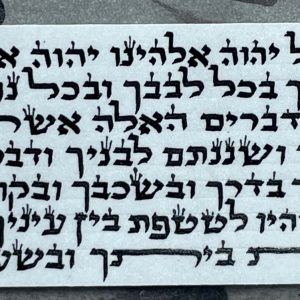 ל יהוה אלהינו יהוה א
ך בכל לבבך ובכל נפ
דברים האלה אשר
ושננתם לבניך ודב
בדרך ובשכבך ובקו
היו לטטפת בין עיני
ת ביתך ובשע